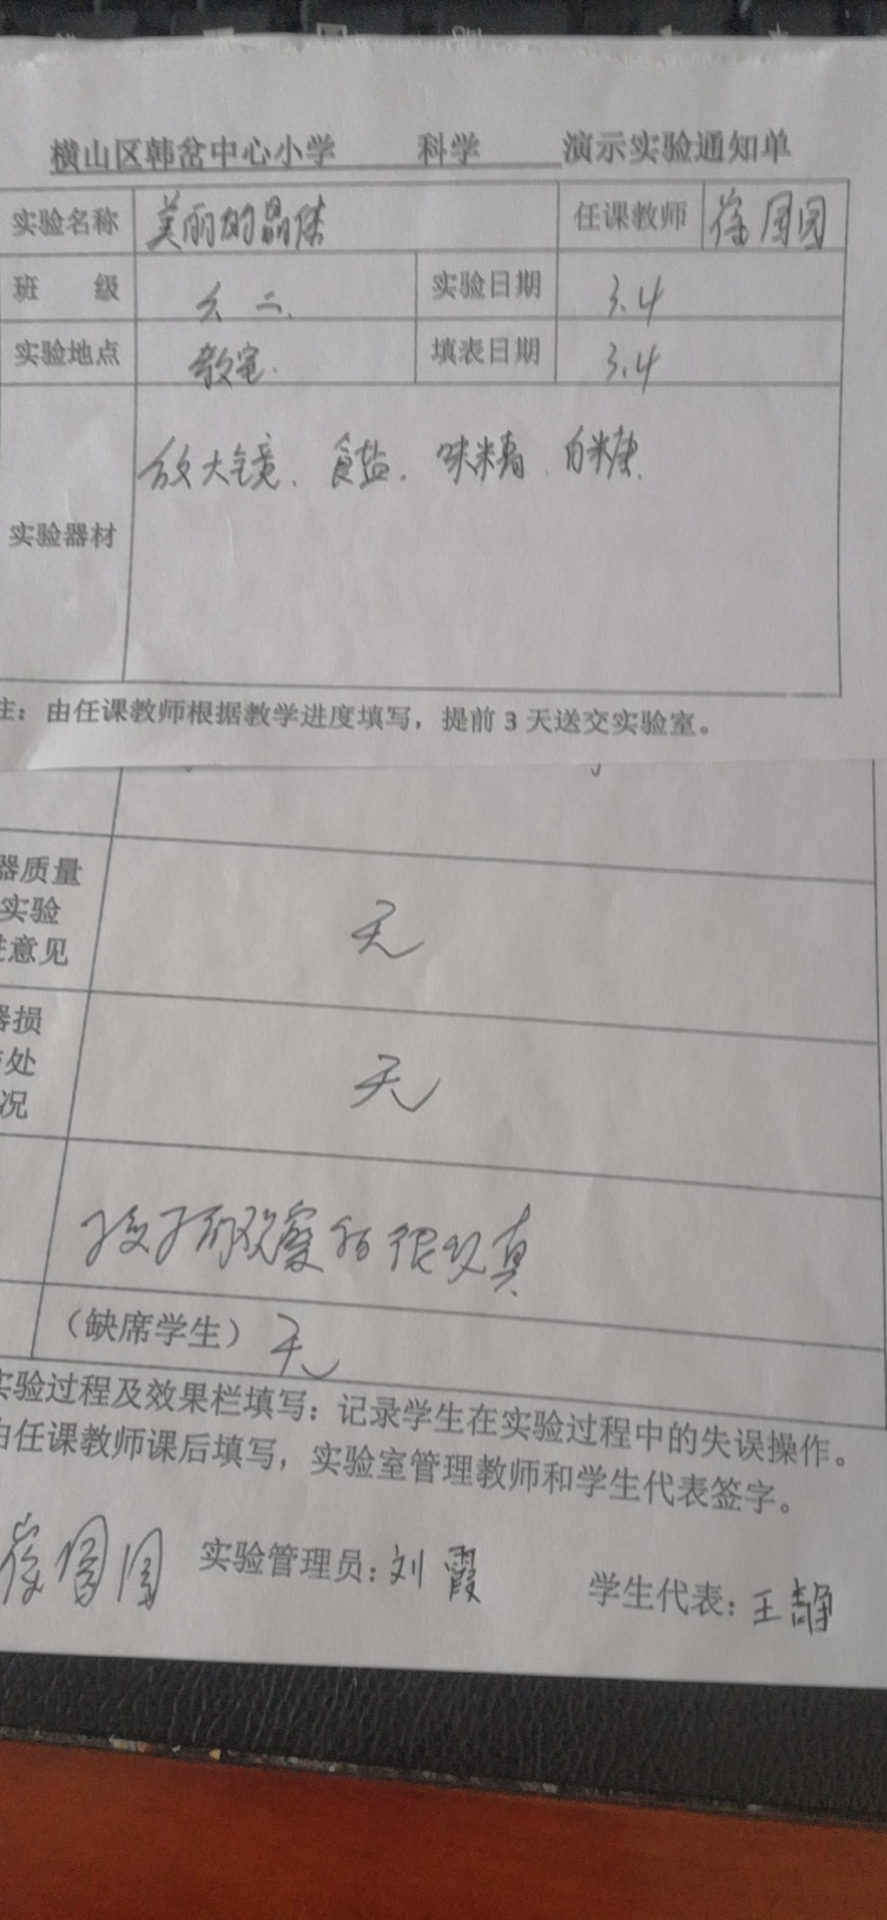 横山区韩岔中心小学 科学 演示实验通知单
实验名称 美丽的晶体 任课教师 园园
班 级 二 实验日期 3.4
实验地点 教室. 填表日期 3.4
实验器材 放大镜、食盐、味精、白糖.
注：由任课教师根据教学进度填写，提前3天送交实验室。
器质量
实验
进意见
无
器损
处
况
无
孩子们观察的很认真
（缺席学生）无
实验过程及效果栏填写：记录学生在实验过程中的失误操作。
由任课教师课后填写，实验室管理教师和学生代表签字。
实验管理员：刘霞 学生代表：王静